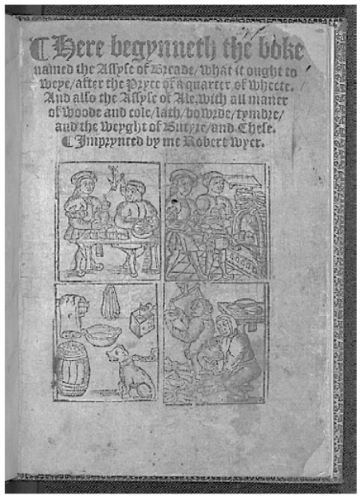 ¶Here begynneth the boke
named the Assyse of Breade/what it ought to
weye/after the Pryce of a quarter of Wheete.
And also the Assyse of Ale,with all maner
of woode and cole/lath/bowrde/tymbre/
and the weyght of Butyre/and Chese.
¶Imprynted by me Robert Wyer.